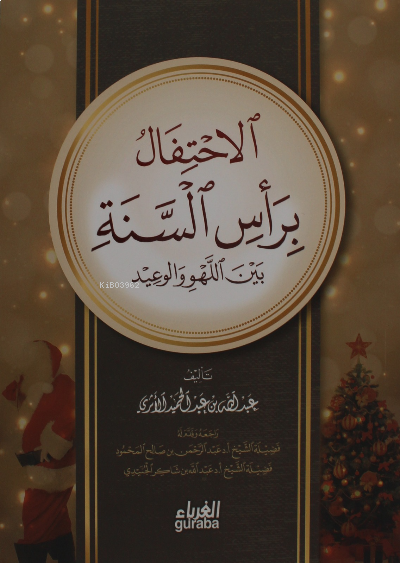 الاحْتِفَالُ
بِرَأْسِ السَّنَةِ
بَيْنَ اللَّهْوِ وَالْوَعِيْدِ
KiB03902
تَأليْفُ
عبد الله بن عبد الحميد الأثري
رَاجَعَهُ وَقَدَّمَ لَهُ
فَضِيْلَةُ الشَّيْخِ أ.د عَبْدُ الرَّحْمَنِ بن صَالح المَحْمُود
فَضِيْلَةُ الشَّيْخِ أ.د عَبْدُ اللهِ بن شَاكِر الجُنَيْدِي
الغرباء
guraba